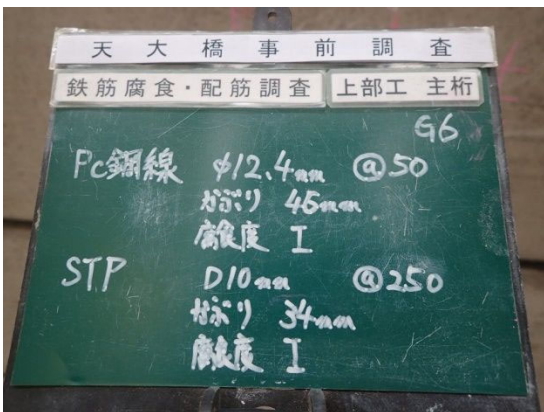 天大橋事前調査
鉄筋腐食・配筋調査 上部工 主桁
G6
Pc鋼線 φ12.4mm @50
かぶり 46mm
腐食度 I
STP D10mm @250
かぶり 34mm
腐食度 I